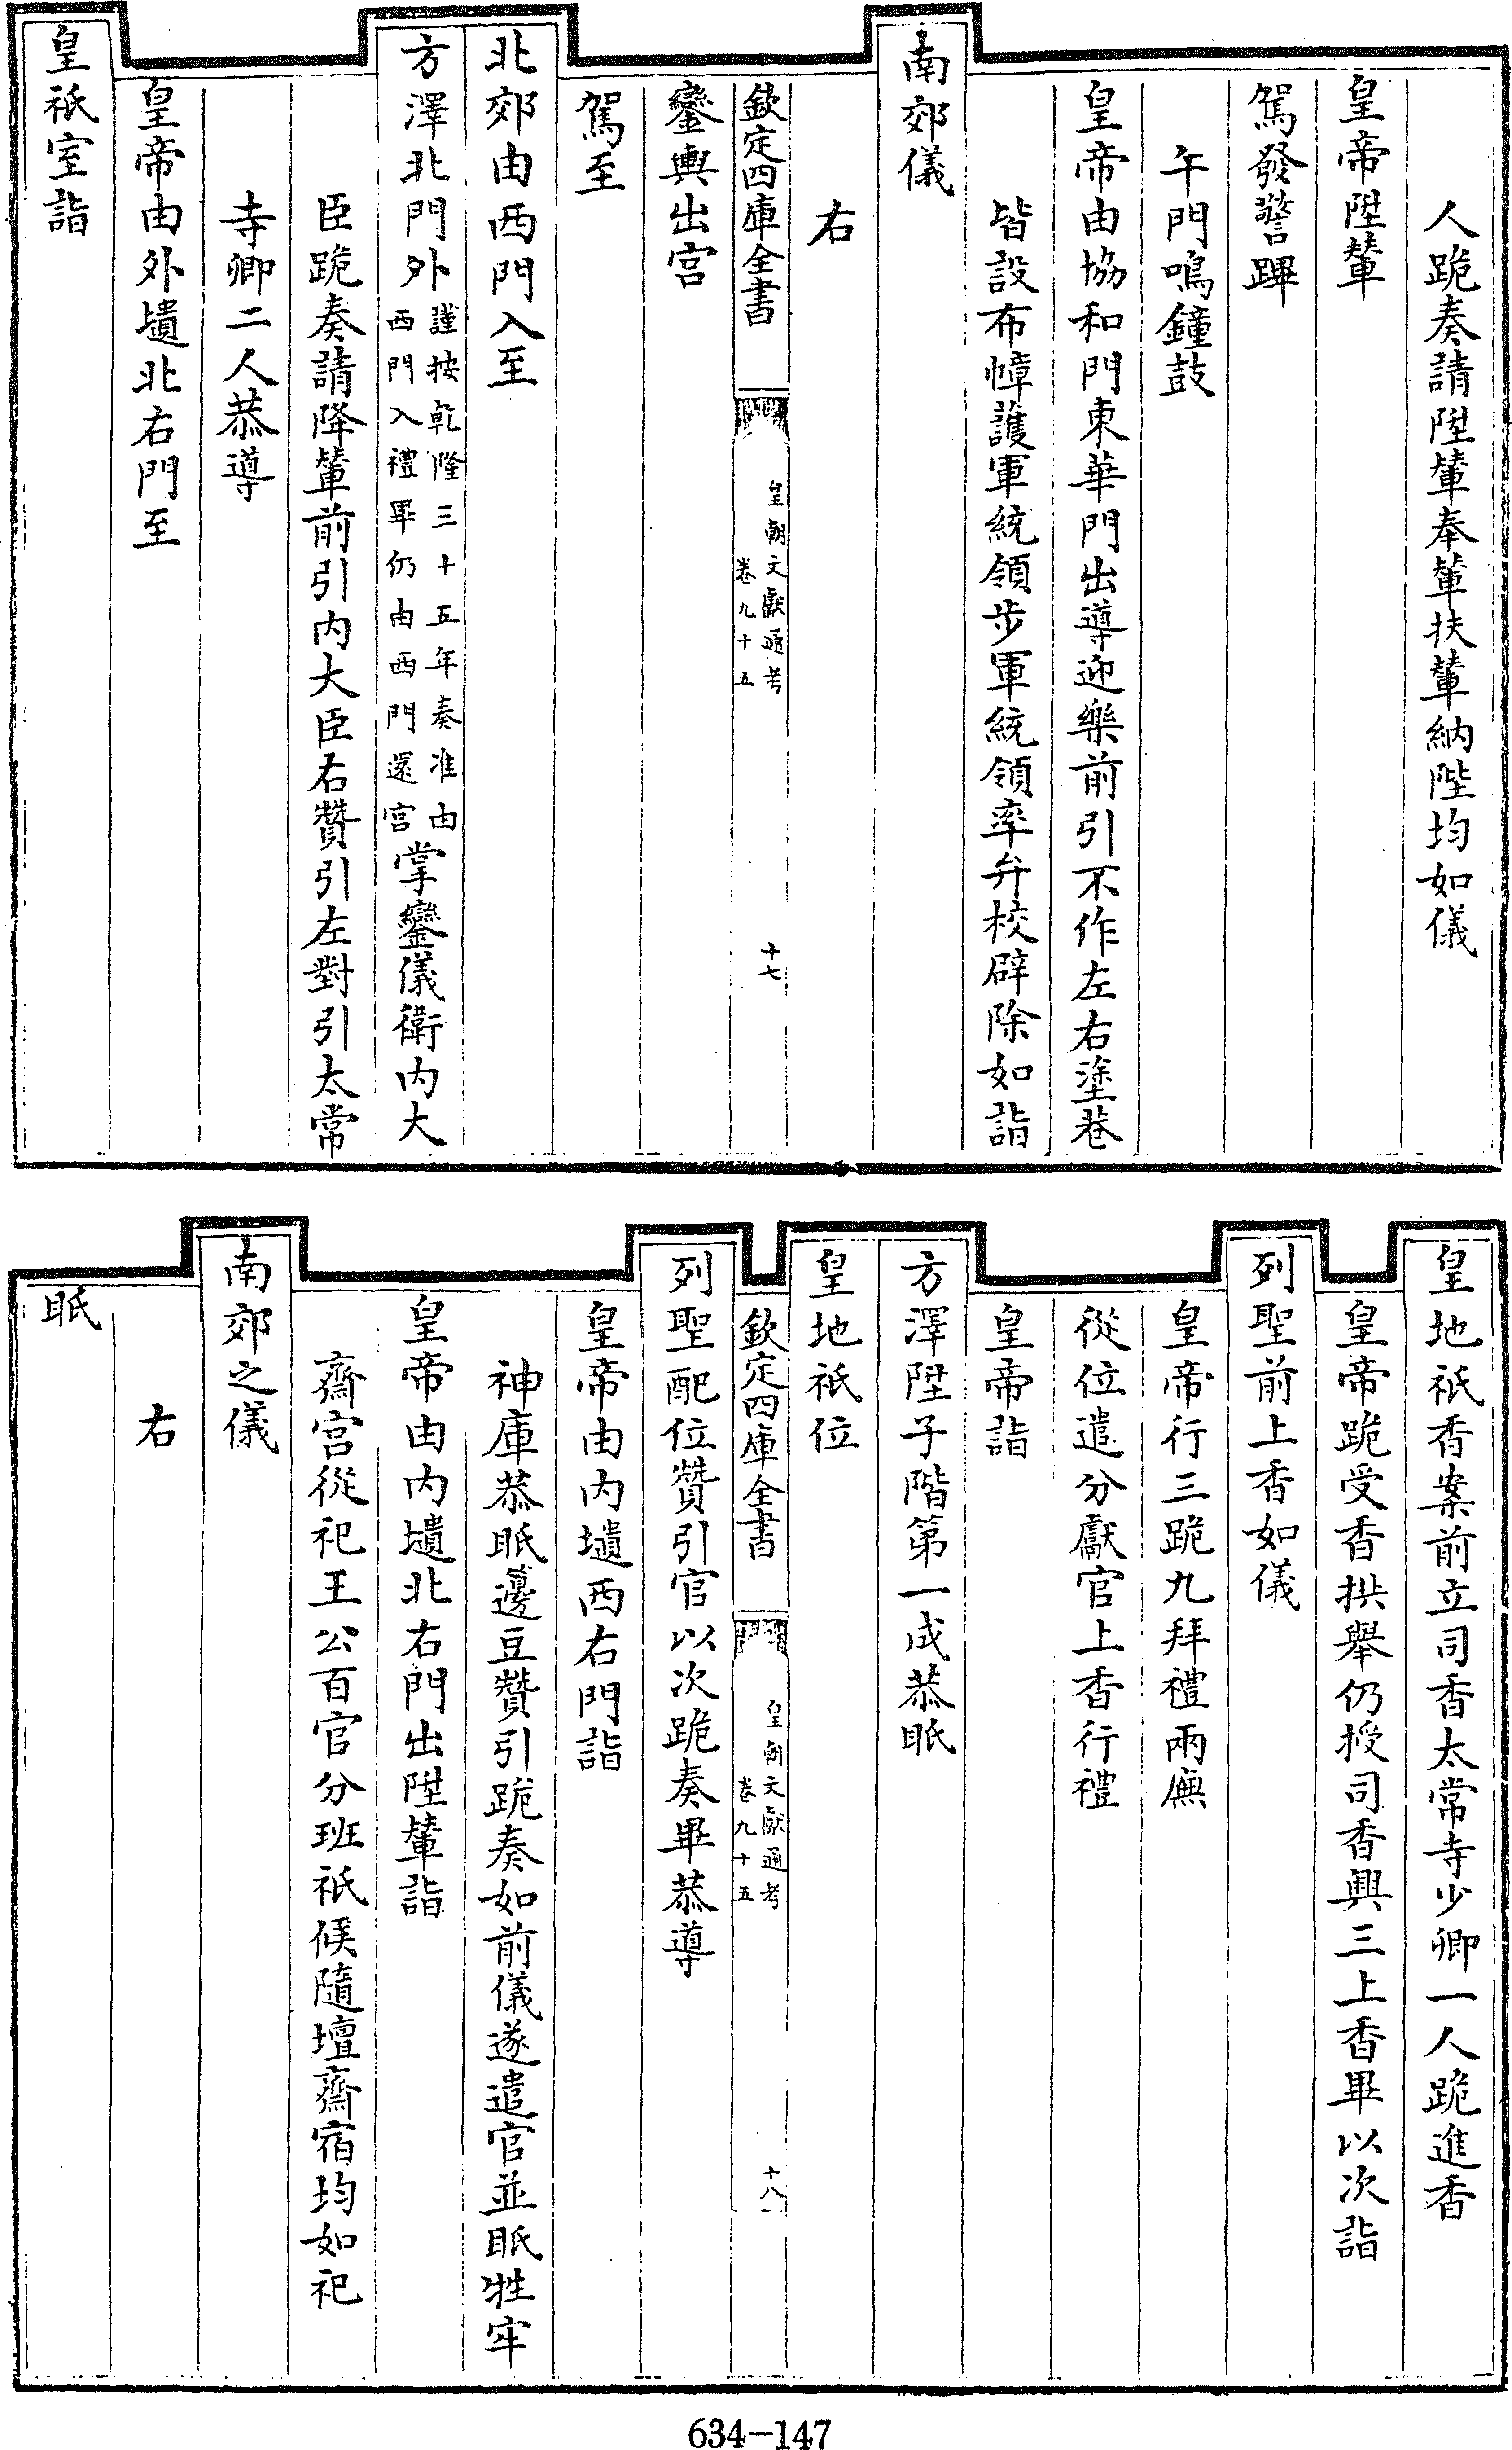 人跪奏請陞輦奉輦扶輦納陛均如儀
皇帝陞輦
駕發警蹕
午門鳴鐘鼓
皇帝由協和門東華門出導迎樂前引不作左右塗巷
皆設布幛護軍統領步軍統領率弁校辟除如詣
南郊儀
右
欽定四庫全書
皇朝文獻通考
卷九十五
十七
鑾輿出宮
駕至
北郊由西門入至
方澤北門外謹按乾隆三十五年奏准由
西門入禮畢仍由西門還宮掌鑾儀衛内大
臣跪奏請降輦前引内大臣右贊引左對引太常
寺卿二人恭導
皇帝由外壝北右門至
皇祇室詣
皇地祇香案前立司香太常寺少卿一人跪進香
皇帝跪受香拱舉仍授司香興三上香畢以次詣
列聖前上香如儀
皇帝行三跪九拜禮兩廡
從位遣分獻官上香行禮
皇帝詣
方澤陞子階第一成恭眂
皇地祇位
欽定四庫全書
皇朝文獻通考
卷九十五
十八
列聖配位贊引官以次跪奏畢恭導
皇帝由内壝西右門詣
神庫恭眂籩豆贊引跪奏如前儀遂遣官並眂牲牢
皇帝由内壝北右門出陞輦詣
齋宮從祀王公百官分班祇候隨壇齋宿均如祀
南郊之儀
右
眂
634-147